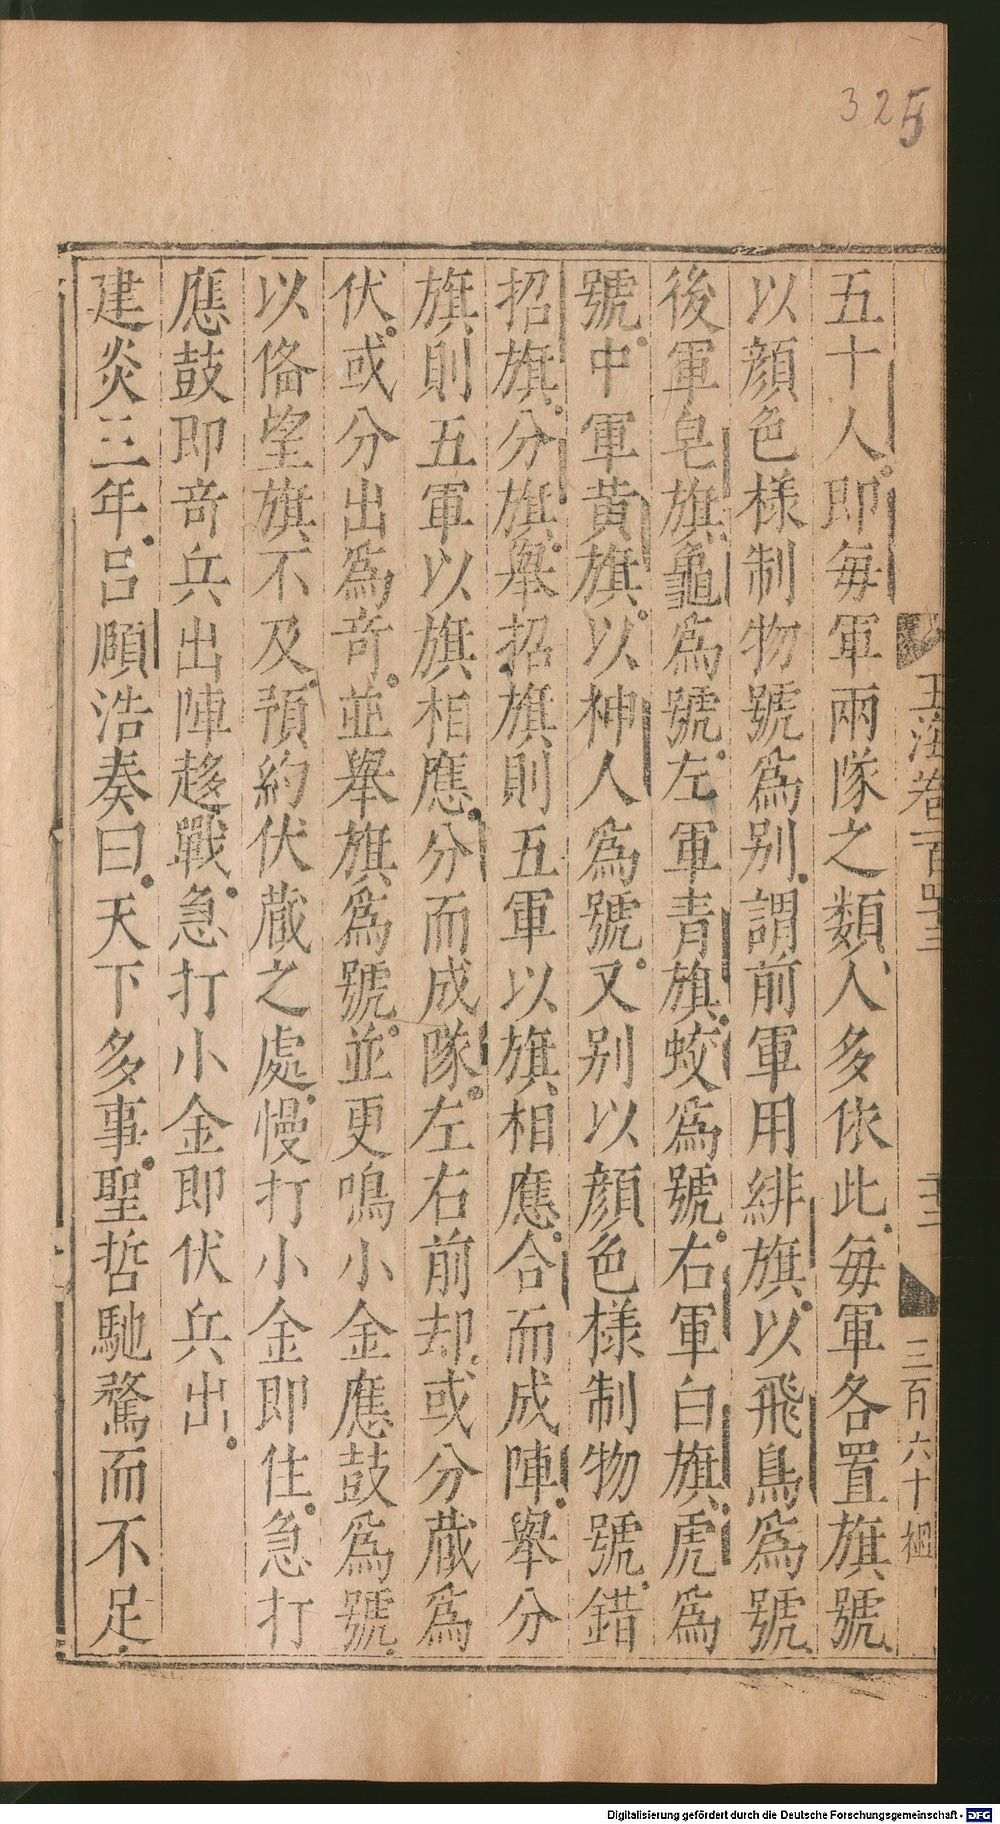 325
玉海卷百四十三
三百六十
五十人即每軍兩隊之類人多依此每軍各置旗號
以顔色樣制物號爲别謂前軍用緋旗以飛鳥爲號
後軍皂旗龜爲號左軍青旗蛟爲號右軍白旗虎爲
號中軍黄旗以神人爲號又别以顔色樣制物號錯
招旗分旗舉招旗則五軍以旗相應合而成陣舉分
旗則五軍以旗相應分而成隊左右前却或分蔵爲
伏或分出爲奇並舉旗爲號並更鳴小金應鼓爲號
以俻望旗不及預約伏蔵之處慢打小金即住急打
應鼓即奇兵出陣趍戰急打小金即伏兵出
建炎三年吕頤浩奏曰天下多事聖哲馳騖而不足
Digitalisierung gefördert durch die Deutsche Forschungsgemeinschaft - DFG